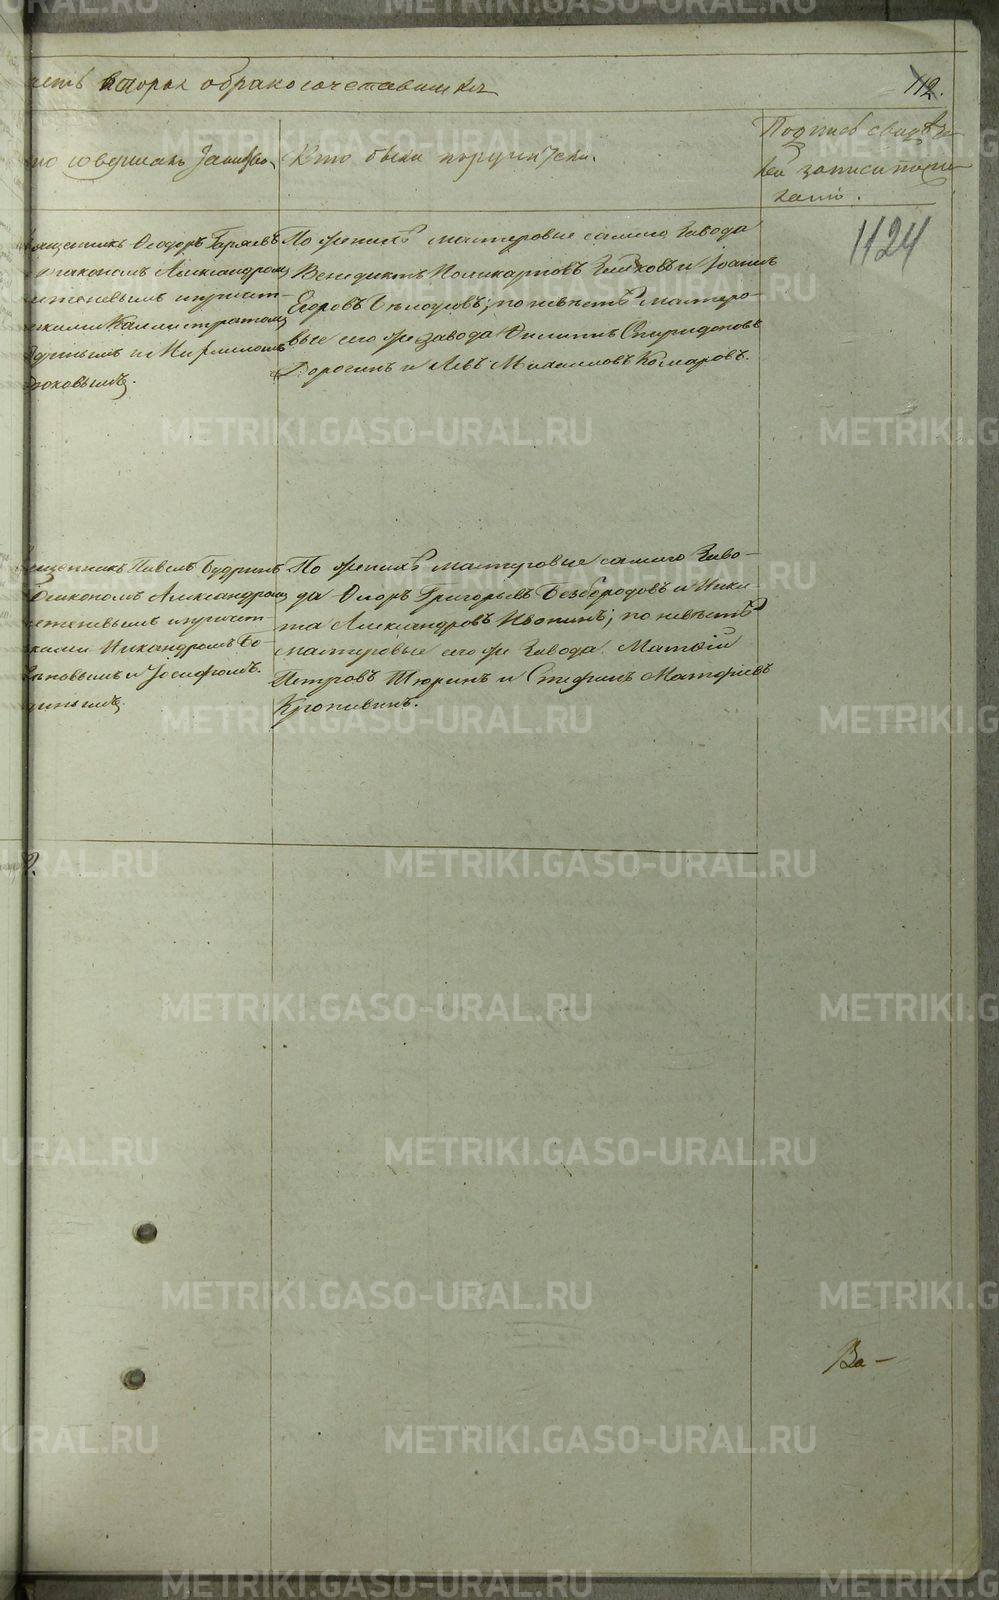 асть вторая о бракосочетавшихся
112.
то совершалъ Таинство.
Кто были поручители.
Подписъ свидѣте-
лей записи по же-
ланію.
1124
Священникъ Ѳеодоръ
діакономъ Александромъ
и причет-
никами Каллистратомъ
и
По женихѣ мастеровые самаго завода
Венедиктъ Поликарповъ и Іоаннъ
Егоровъ Бѣлоусовъ; по невѣстѣ мастеро-
вые сего же завода Филиппъ Спиридоновъ
Дорогинъ и Левъ Михаиловъ Комаровъ.
Священникъ Павелъ Будринъ
діакономъ Александромъ
и причет-
никами Никандромъ
и Іосифомъ
По женихѣ мастеровые самаго заво-
да Ѳеодоръ Григорьевъ Безбородовъ и Ники-
та Александровъ Ивонинъ; по невѣстѣ
мастеровые сего же завода Матвій
Петровъ Тюринъ и Стефанъ Матѳіевъ
Кропивинъ.
Ва-
METRIKI.GASO-URAL.RU